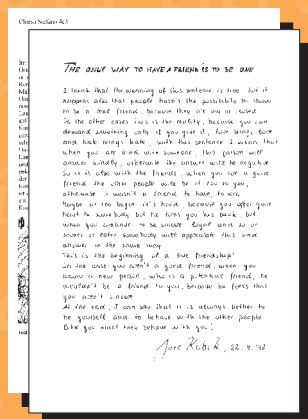 Chiesa Stefano 4c5
THE ONLY WAY TO HAVE A FRIEND IS TO BE ONE
I think that the meaning of this sentence is true but it
happens also that people hasn't the possibility to show
to be a real friend, because they are shy or isolated
In the other cases this is the reality, because you can
demand something only if you give it, love brings love
and hate brings hate, with this sentence I mean that
when you are kind with someone, this person will
answer kindly, otherwise the answer will be negative
So is it also with the friends, when you are a good
friend the other people will be it too to you,
otherwise it wasn't a friend to have, to win
Maybe at the begin it's hard, because you offer your
heart to somebody but he turns you his back, but
when you continue to be sincere, loyal and so on
sooner or later somebody will appreciate this and
answer in the same way
This is the beginning of a true friendship!
In the case you aren't a good friend, when you
know a new person, who is a potential friend, he
wouldn't be a friend to you, because he feels that
you aren't sincere
At the end, I can say that it is always better to
be yourself and to behave with the other people
like you want they behave with you!
22.4.'98